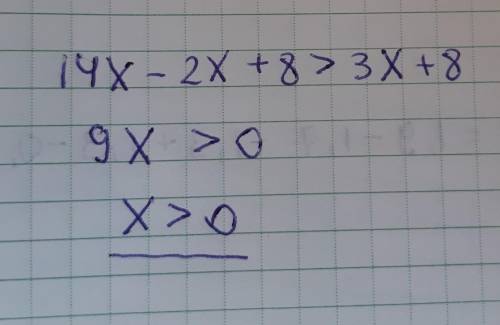 14x - 2x + 8 > 3x + 8
9x > 0
x > 0